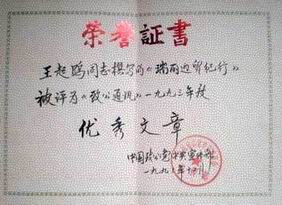 荣誉証書
王超鸥同志撰写的《瑞丽边贸纪行》
被评为《致公通讯》一九九三年度
优秀文章
中国致公党中央宣传部
一九九